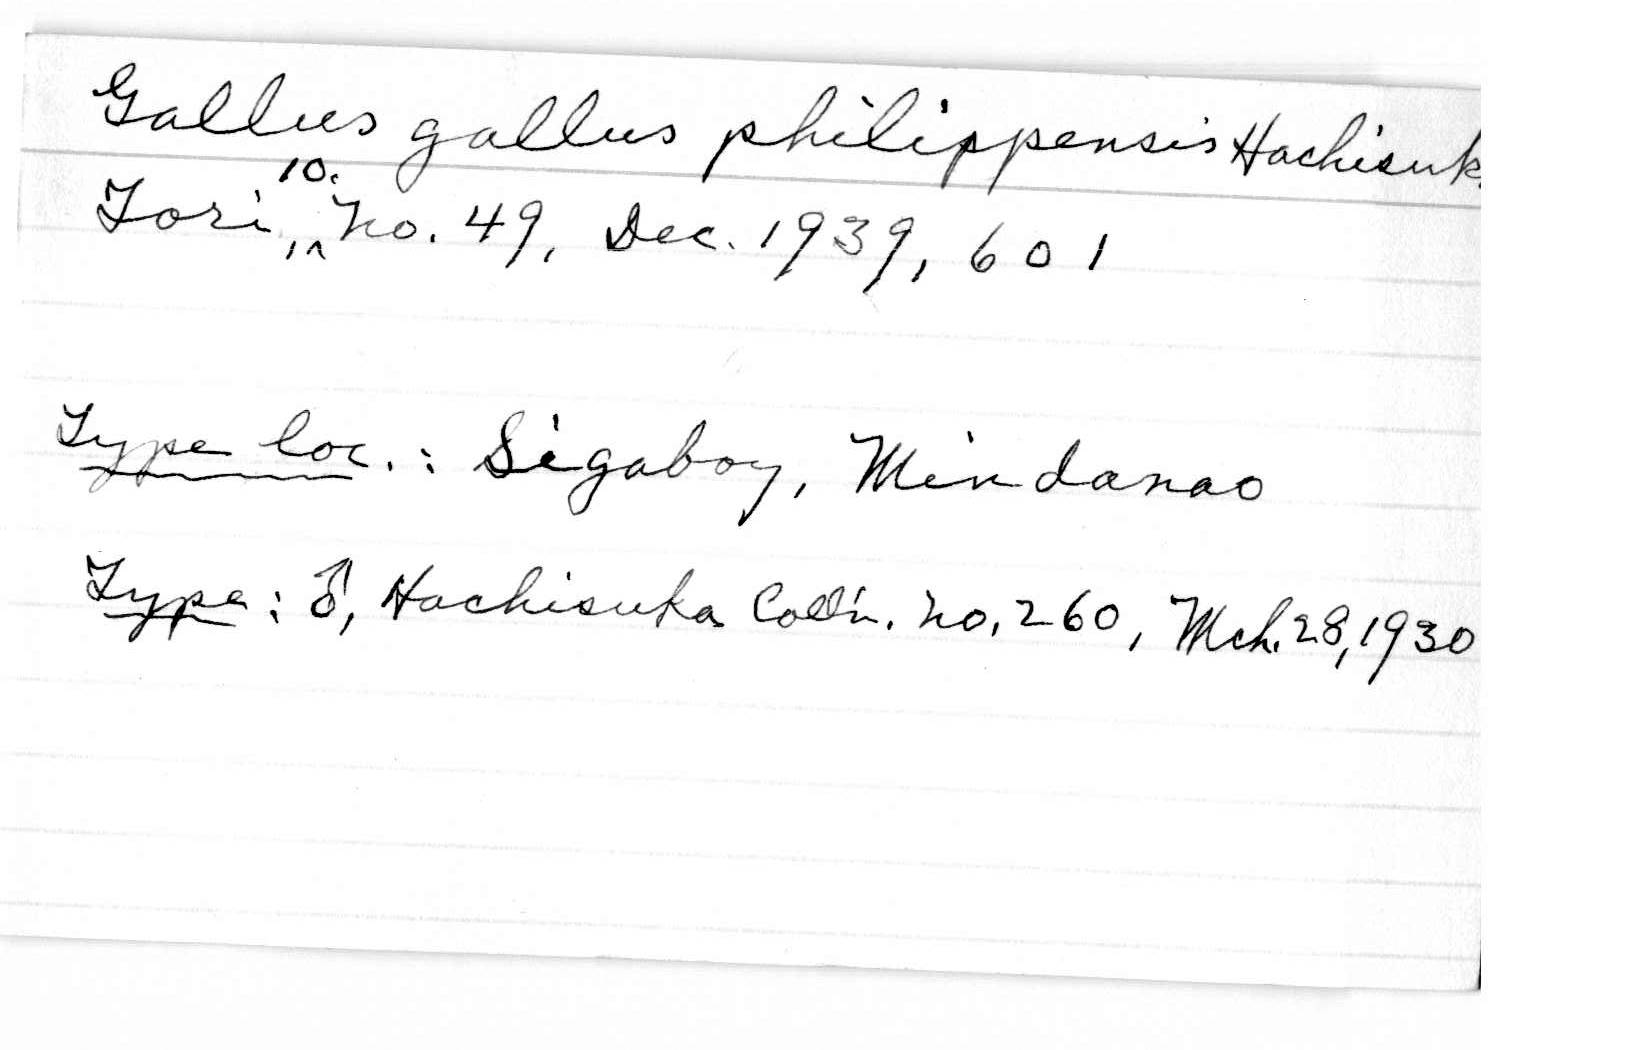 Gallus gallus philippensis Hachisuk
Tori, 10. No. 49, Dec. 1939, 601
Type loc.: Sigaboy, Mindanao
Type: ♂, Hachisuka Coll'n. no. 260, Mch. 28, 1930